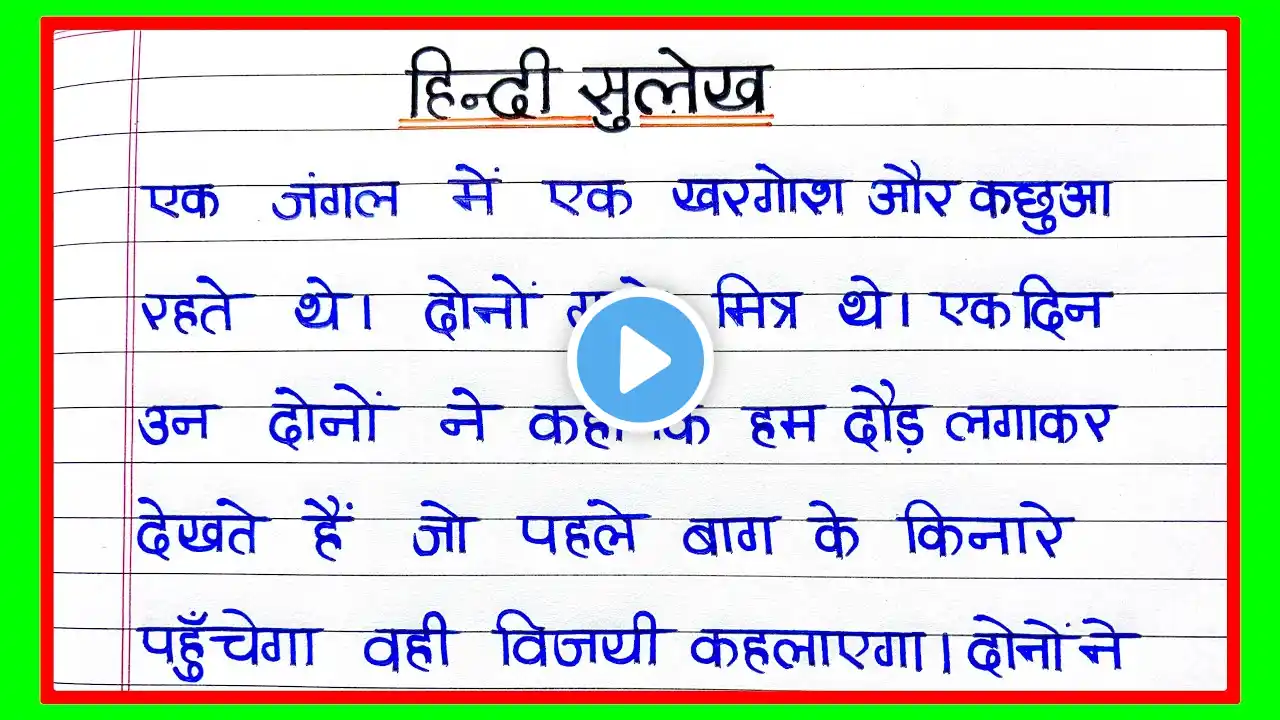 हिन्दी सुलेख
एक जंगल में एक खरगोश और कछुआ
रहते थे। दोनों मित्र थे। एक दिन
उन दोनों ने कहा कि हम दौड़ लगाकर
देखते हैं जो पहले बाग के किनारे
पहुँचेगा वही विजयी कहलाएगा। दोनों ने